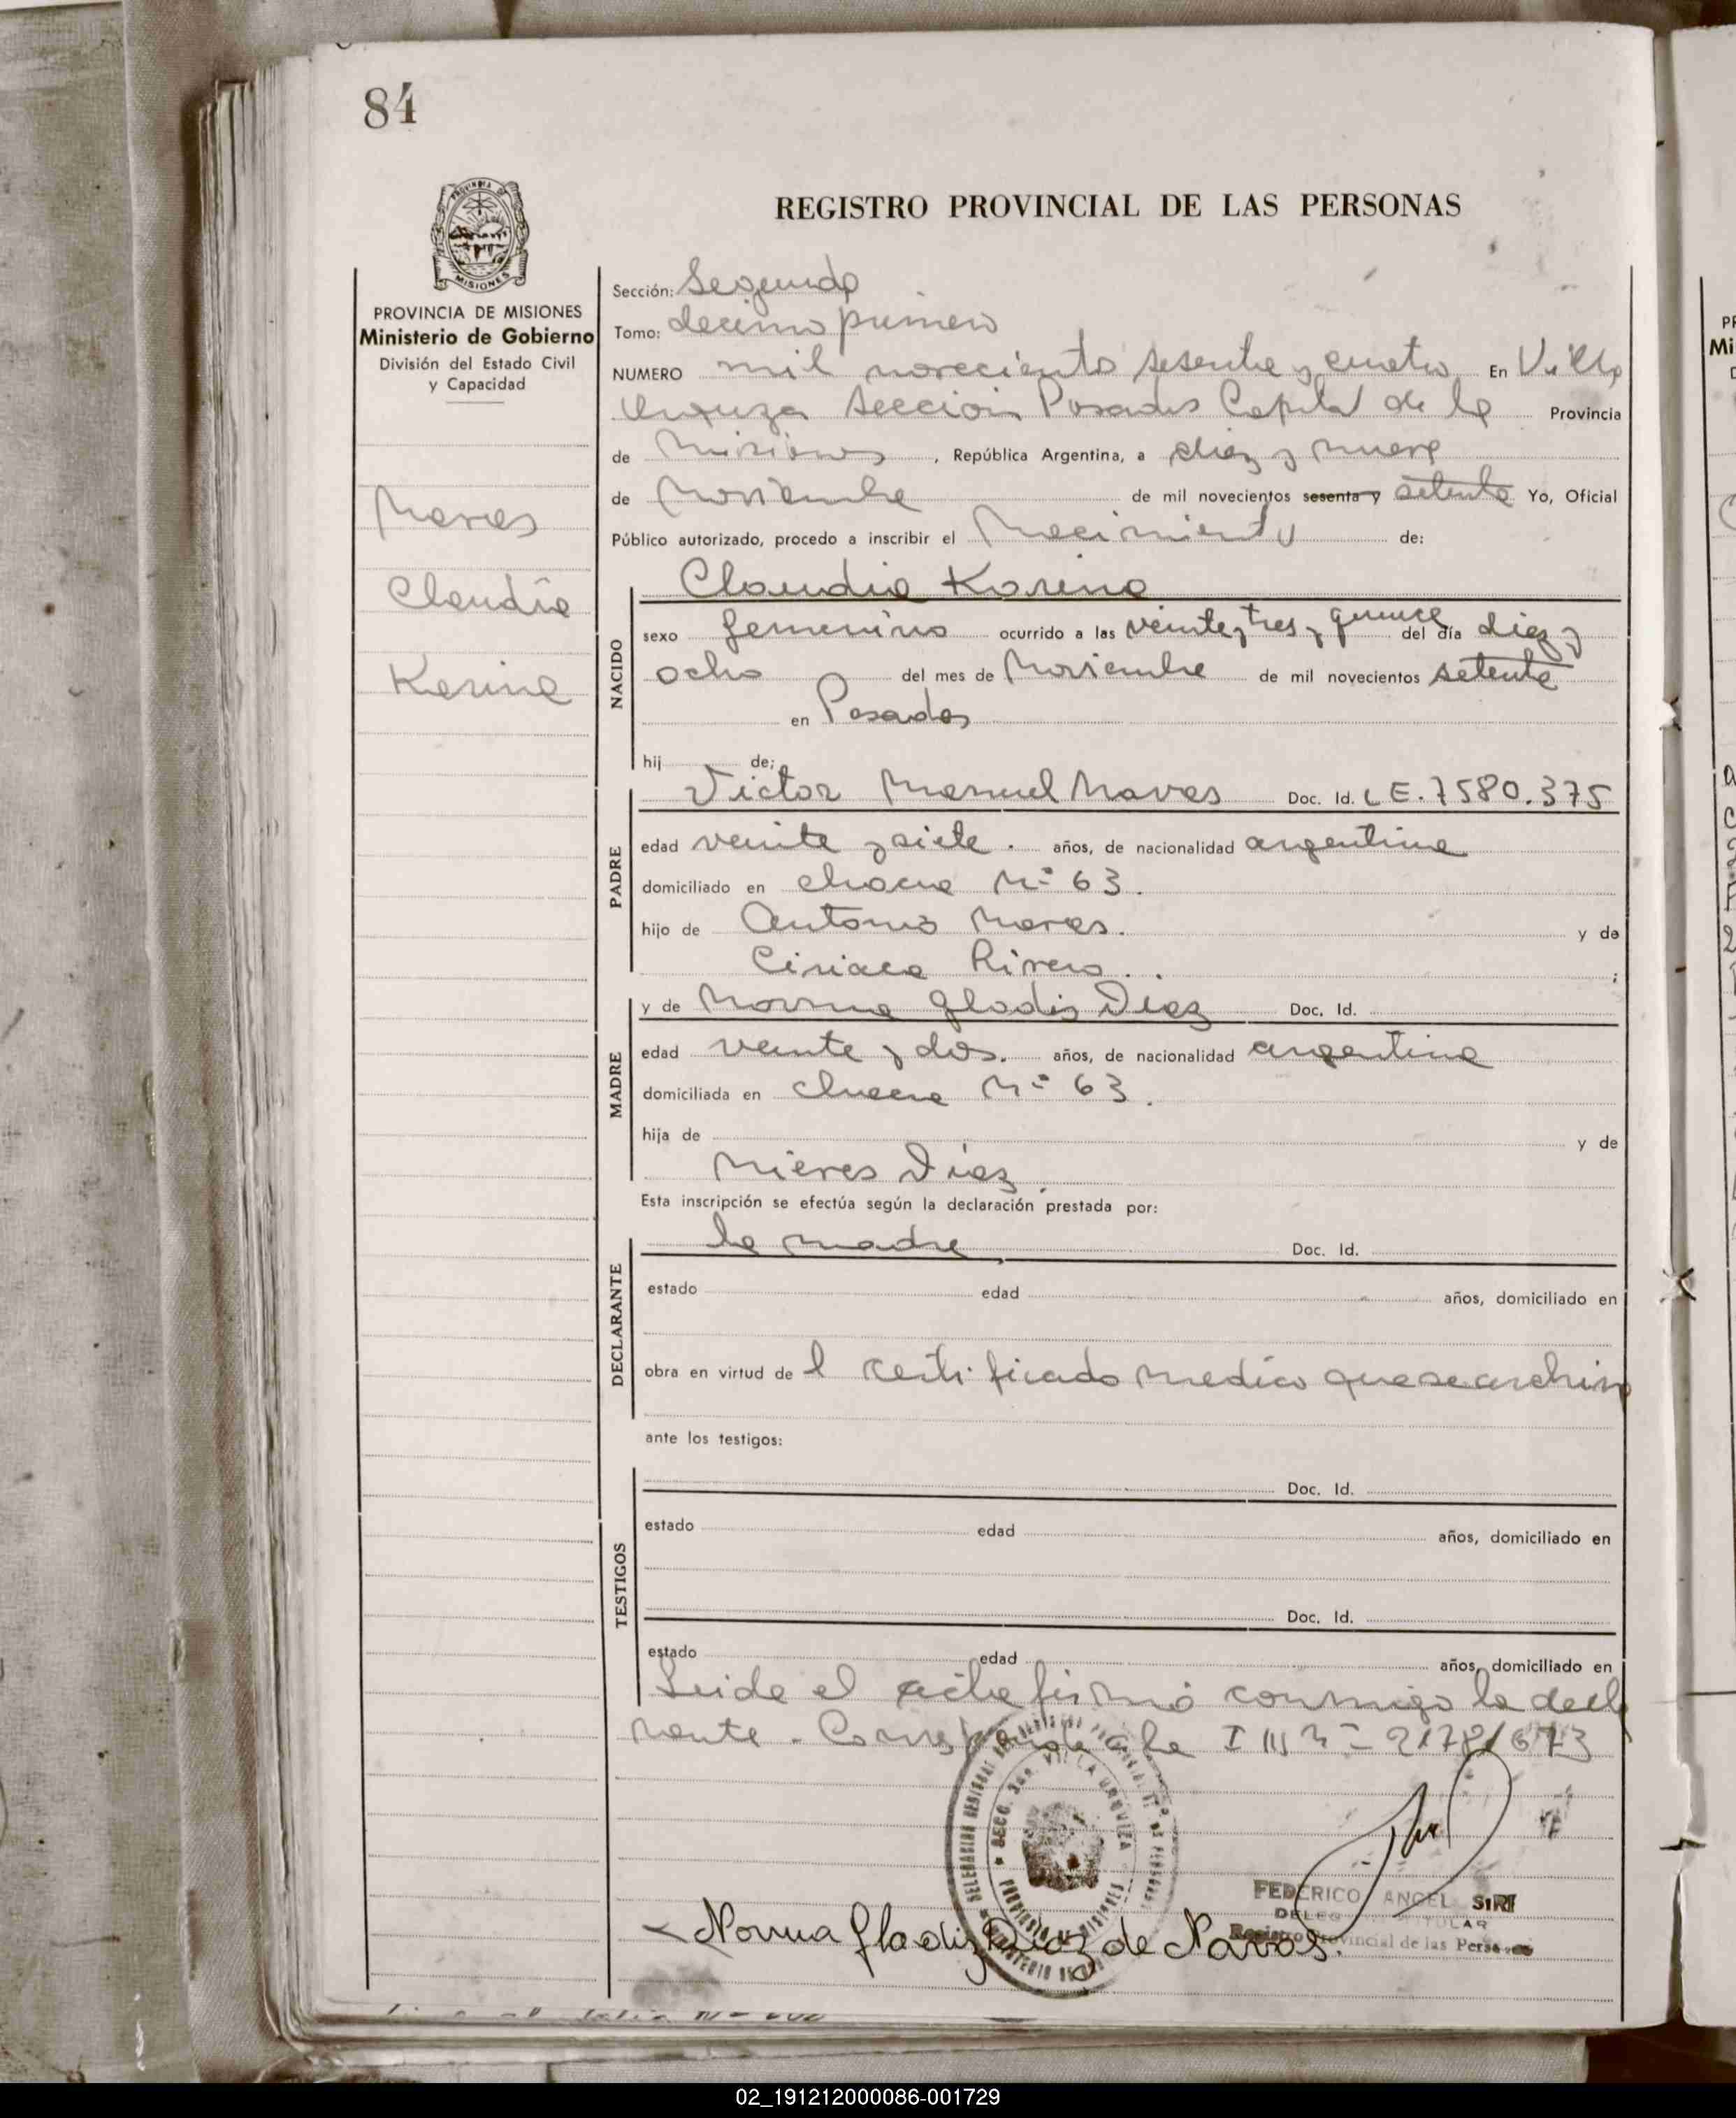 84
REGISTRO PROVINCIAL DE LAS PERSONAS
PROVINCIA DE MISIONES
Ministerio de Gobierno
División del Estado Civil
y Capacidad
Navas
Claudia
Karina
Sección: Segunda
Tomo: decimo primero
NUMERO mil noveciento sesenta y cuatro En Villa
Urquiza Sección Posadas Capital de la Provincia
de Misiones, República Argentina, a diez y nueve
de Noviembre de mil novecientos sesenta y setenta Yo, Oficial
Público autorizado, procedo a inscribir el Nacimiento de:
Claudia Karina
NACIDO
sexo femenino ocurrido a las veinte y tres y quince del día diez y
ocho del mes de Noviembre de mil novecientos setenta
en Posadas
hij de:
Victor Manuel Navas Doc. Id. L E. 7580.375
PADRE
edad veinte y siete. años, de nacionalidad argentina
domiciliado en chacra Nº 63.
hijo de Antonio Navas. y de
Ciriaca Rivero. . ;
y de Norma Gladis Diaz Doc. Id.
MADRE
edad veinte y dos. años, de nacionalidad argentina
domiciliada en chacra Nº 63.
hija de y de
Nieves Diaz.
Esta inscripción se efectúa según la declaración prestada por:
la madre Doc. Id.
DECLARANTE
estado edad años, domiciliado en
obra en virtud de l certificado medico que se archiva
ante los testigos:
Doc. Id.
TESTIGOS
estado edad años, domiciliado en
Doc. Id.
estado edad años, domiciliado en
Leida el acta firmó conmigo la decla
rante. Corresponde la
SECC. 3ra. VILLA URQUIZA
PROVINCIA DE MISIONES
FEDERICO ANGEL SIRI
Registro Provincial de las Personas
Norma Gladiz Diaz de Navas.
02_191212000086-001729